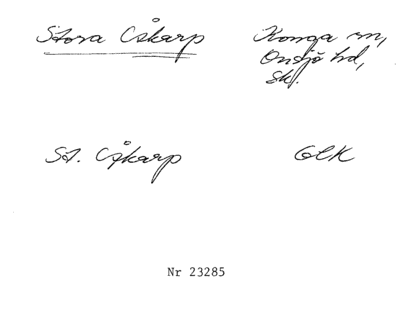 Stora Åkarp
Konga sn,
Onsjö hd,
Sk.
St. Åkarp
GEK
Nr 23285